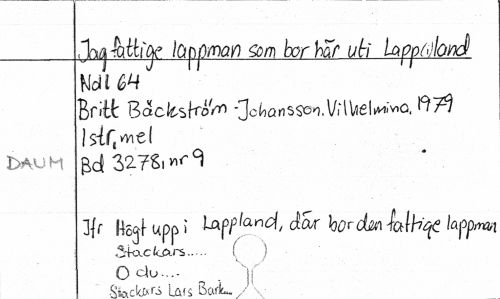 Jag fattige lappman som bor här uti Lapp(i)land
Ndl 64
Britt Bäckström-Johansson. Vilhelmina, 1979
1 str, mel
DAUM Bd 3278, nr 9
Jfr Högt upp i Lappland, där bor den fattige lappman
Stackars.....
O du....
Stackars Lars Bark...